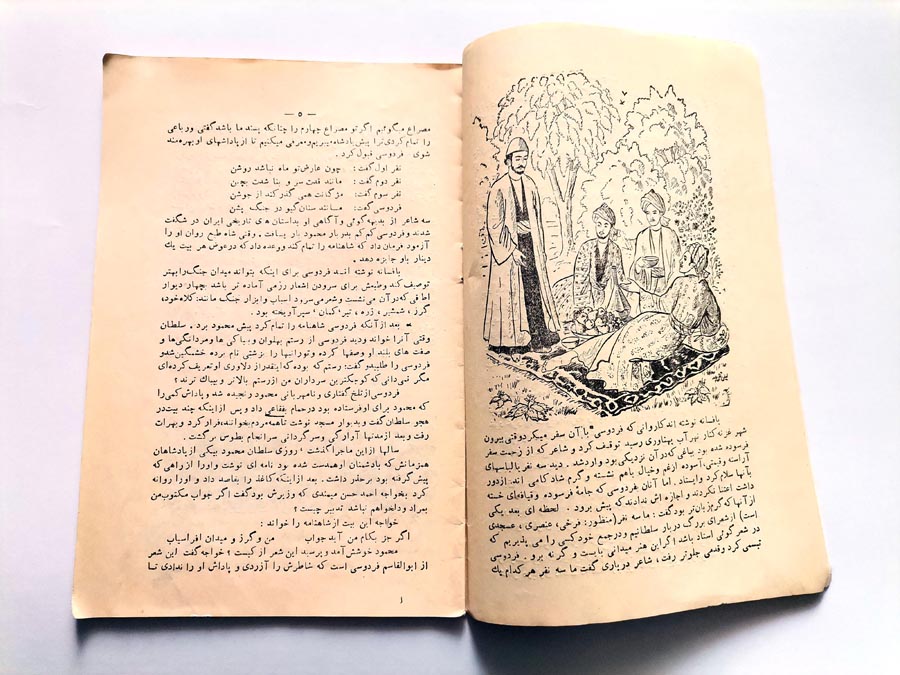 بافسانه اند کاروانی که فردوسی با آن سفر میکرد وقتی بیرون
شهر غزنه کنار نهر آب پهناوری رسید توقف کرد و شاعر که از زحمت سفر
فرسوده شده بود بباغی که در آن نزدیکی بود وارد شد. دید سه نفر بالباسهای
آراسته و قیمتی، آسوده ازغم وخیال باهم نشسته و گرم شاد کامی اند: ازدور
بآنها سلام کرد و ایستاد. اما آنان بفردوسی که جامهٔ فرسوده و قیافه‌ای خسته
داشت اعتنا نکردند و اجازه اش ندادند که پیش برود. لحظه ای بعد یکی
از آنها که گرم‌زبان‌تر بود گفت: ما سه نفر (منظور: فرخی، عنصری، عسجدی
است) از شعرای بزرگ دربار سلطانیم و در جمع خود کسی را می پذیریم که
در شعر گوئی استاد باشد اگر این هنر میدانی بایست و گرنه برو. فردوسی
تبسمی کرد و قدمی جلوتر رفت، شاعر درباری گفت ما سه نفر هر کدام یك
— ۵ —
مصراع میگوئیم اگر تو مصراع چهارم را چنانکه پسند ما باشد گفتی و رباعی
را تمام کردی ترا پیش پادشاه میبریم و معرفی میکنیم تا از پاداشهای او بهره‌مند
شوی. فردوسی قبول کرد.
نفر اول گفت: چون عارض تو ماه نباشد روشن
نفر دوم گفت: مانند قدت سر و بنا شدت بچمن
نفر سوم گفت: مژگانت همی گذر کند از جوشن
فردوسی گفت: مانند سنان گیو در جنگ پشن
سه شاعر از بدیهه گوئی و آگاهی او بداستان های تاریخی ایران در شگفت
شدند و فردوسی کم کم بدربار محمود بار یافت. وقتی شاه طبع روان او را
آزمود فرمان داد که شاهنامه را تمام کند و وعده داد که در عوض هر بیت یك
دینار باو جایزه دهد.
بافسانه نوشته اند فردوسی برای اینکه بتواند میدان جنگ را بهتر
توصیف کند و طبعش برای سرودن اشعار رزمی آماده تر باشد بچهار دیوار
اطاقی که در آن می نشست و شعر می سرود اسباب و ابزار جنگ مانند: کلاه‌خود،
گرز، شمشیر، زره، تیر، کمان، سپر آویخته بود.
بعد از آنکه فردوسی شاهنامه را تمام کرد پیش محمود برد. سلطان
وقتی آنرا خواند و دید فردوسی از رستم پهلوان و بیباکی ها و مردانگی‌ها و
صفت های بلند او وصفها کرده و تورانیها را بزشتی نام برده خشمگین شد و
فردوسی را طلبید و گفت: رستم که بوده که اینقدر از دلاوری او تعریف کرده‌ای
مگر نمی‌دانی که کوچکترین سرداران من از رستم بالاتر و بیباك ترند؟
فردوسی از تلخ گفتاری و نامهربانی محمود رنجیده شد و پاداش کمی را
که محمود برای او فرستاده بود در حمام بفقاعی داد و پس از اینکه چند بیت در
هجو سلطان گفت و بدیوار مسجد نوشت تا همهٔ مردم بخوانند، فرار کرد و بهرات
رفت و بعد از مدتها آوارگی و سرگردانی سرانجام بطوس برگشت.
سالها از این ماجرا گذشت، روزی سلطان محمود بیکی از پادشاهان
همزمانش که با دشمنان او همدست شده بود نامه ای نوشت و او را از راهی که
پیش گرفته بود بر حذر داشت. بعد از اینکه کاغذ را بقاصد داد و او را روانه
کرد بخواجه احمد حسن میمندی که وزیرش بود گفت اگر جواب مکتوب من
بمراد و دلخواهم نباشد تدبیر چیست؟
خواجه این بیت از شاهنامه را خواند:
اگر جز بکام من آید جواب من و گرز و میدان افراسیاب
محمود خوشش آمد و پرسید این شعر از کیست؟ خواجه گفت این شعر
از ابوالقاسم فردوسی است که خاطرش را آزردی و پاداش او را ندادی تا